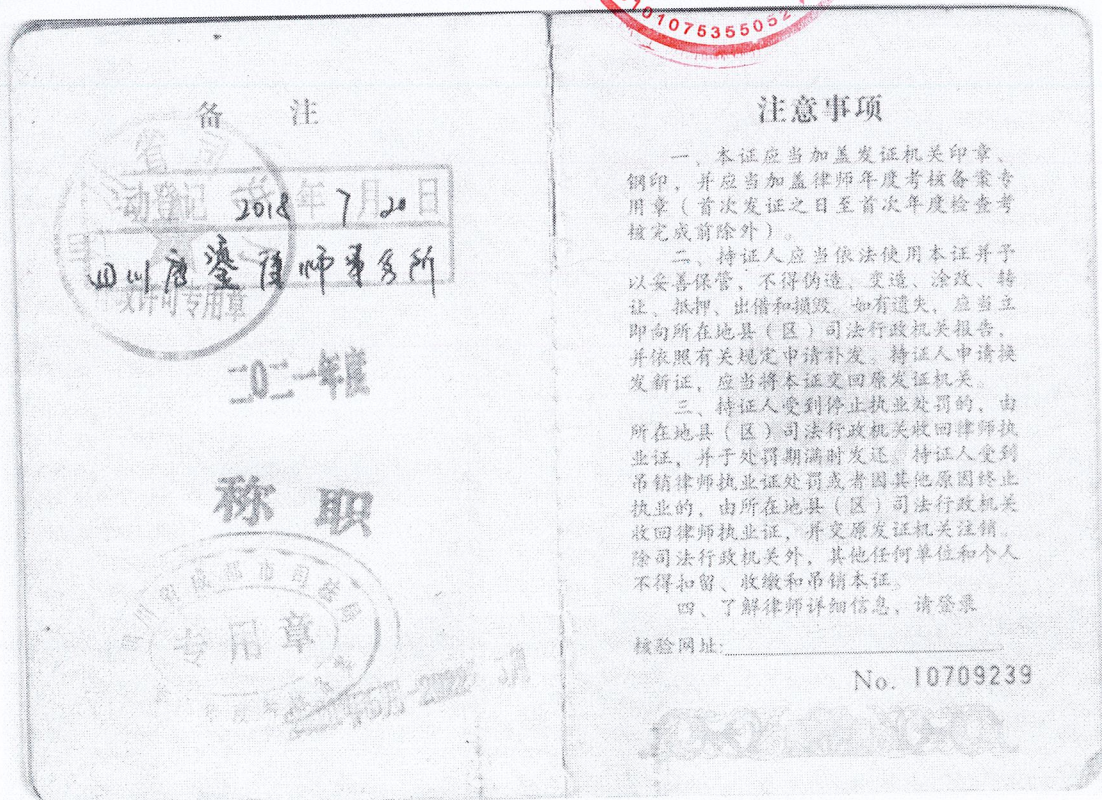 备 注
省司
动登记 2018年7月20日
四川 律师事务所
许可专用章
二〇二一年度
称 职
四川省成都市司法局
专用章
0107535505 2
注意事项
一、本证应当加盖发证机关印章、
钢印，并应当加盖律师年度考核备案专
用章（首次发证之日至首次年度检查考
核完成前除外）。
二、持证人应当依法使用本证并予
以妥善保管，不得伪造、变造、涂改、转
让、抵押、出借和损毁。如有遗失，应当立
即向所在地县（区）司法行政机关报告，
并依照有关规定申请补发。持证人申请换
发新证，应当将本证交回原发证机关。
三、持证人受到停止执业处罚的，由
所在地县（区）司法行政机关收回律师执
业证，并于处罚期满时发还。持证人受到
吊销律师执业证处罚或者因其他原因终止
执业的，由所在地县（区）司法行政机关
收回律师执业证，并交原发证机关注销。
除司法行政机关外，其他任何单位和个人
不得扣留、收缴和吊销本证。
四、了解律师详细信息，请登录
核验网址:
No. 10709239